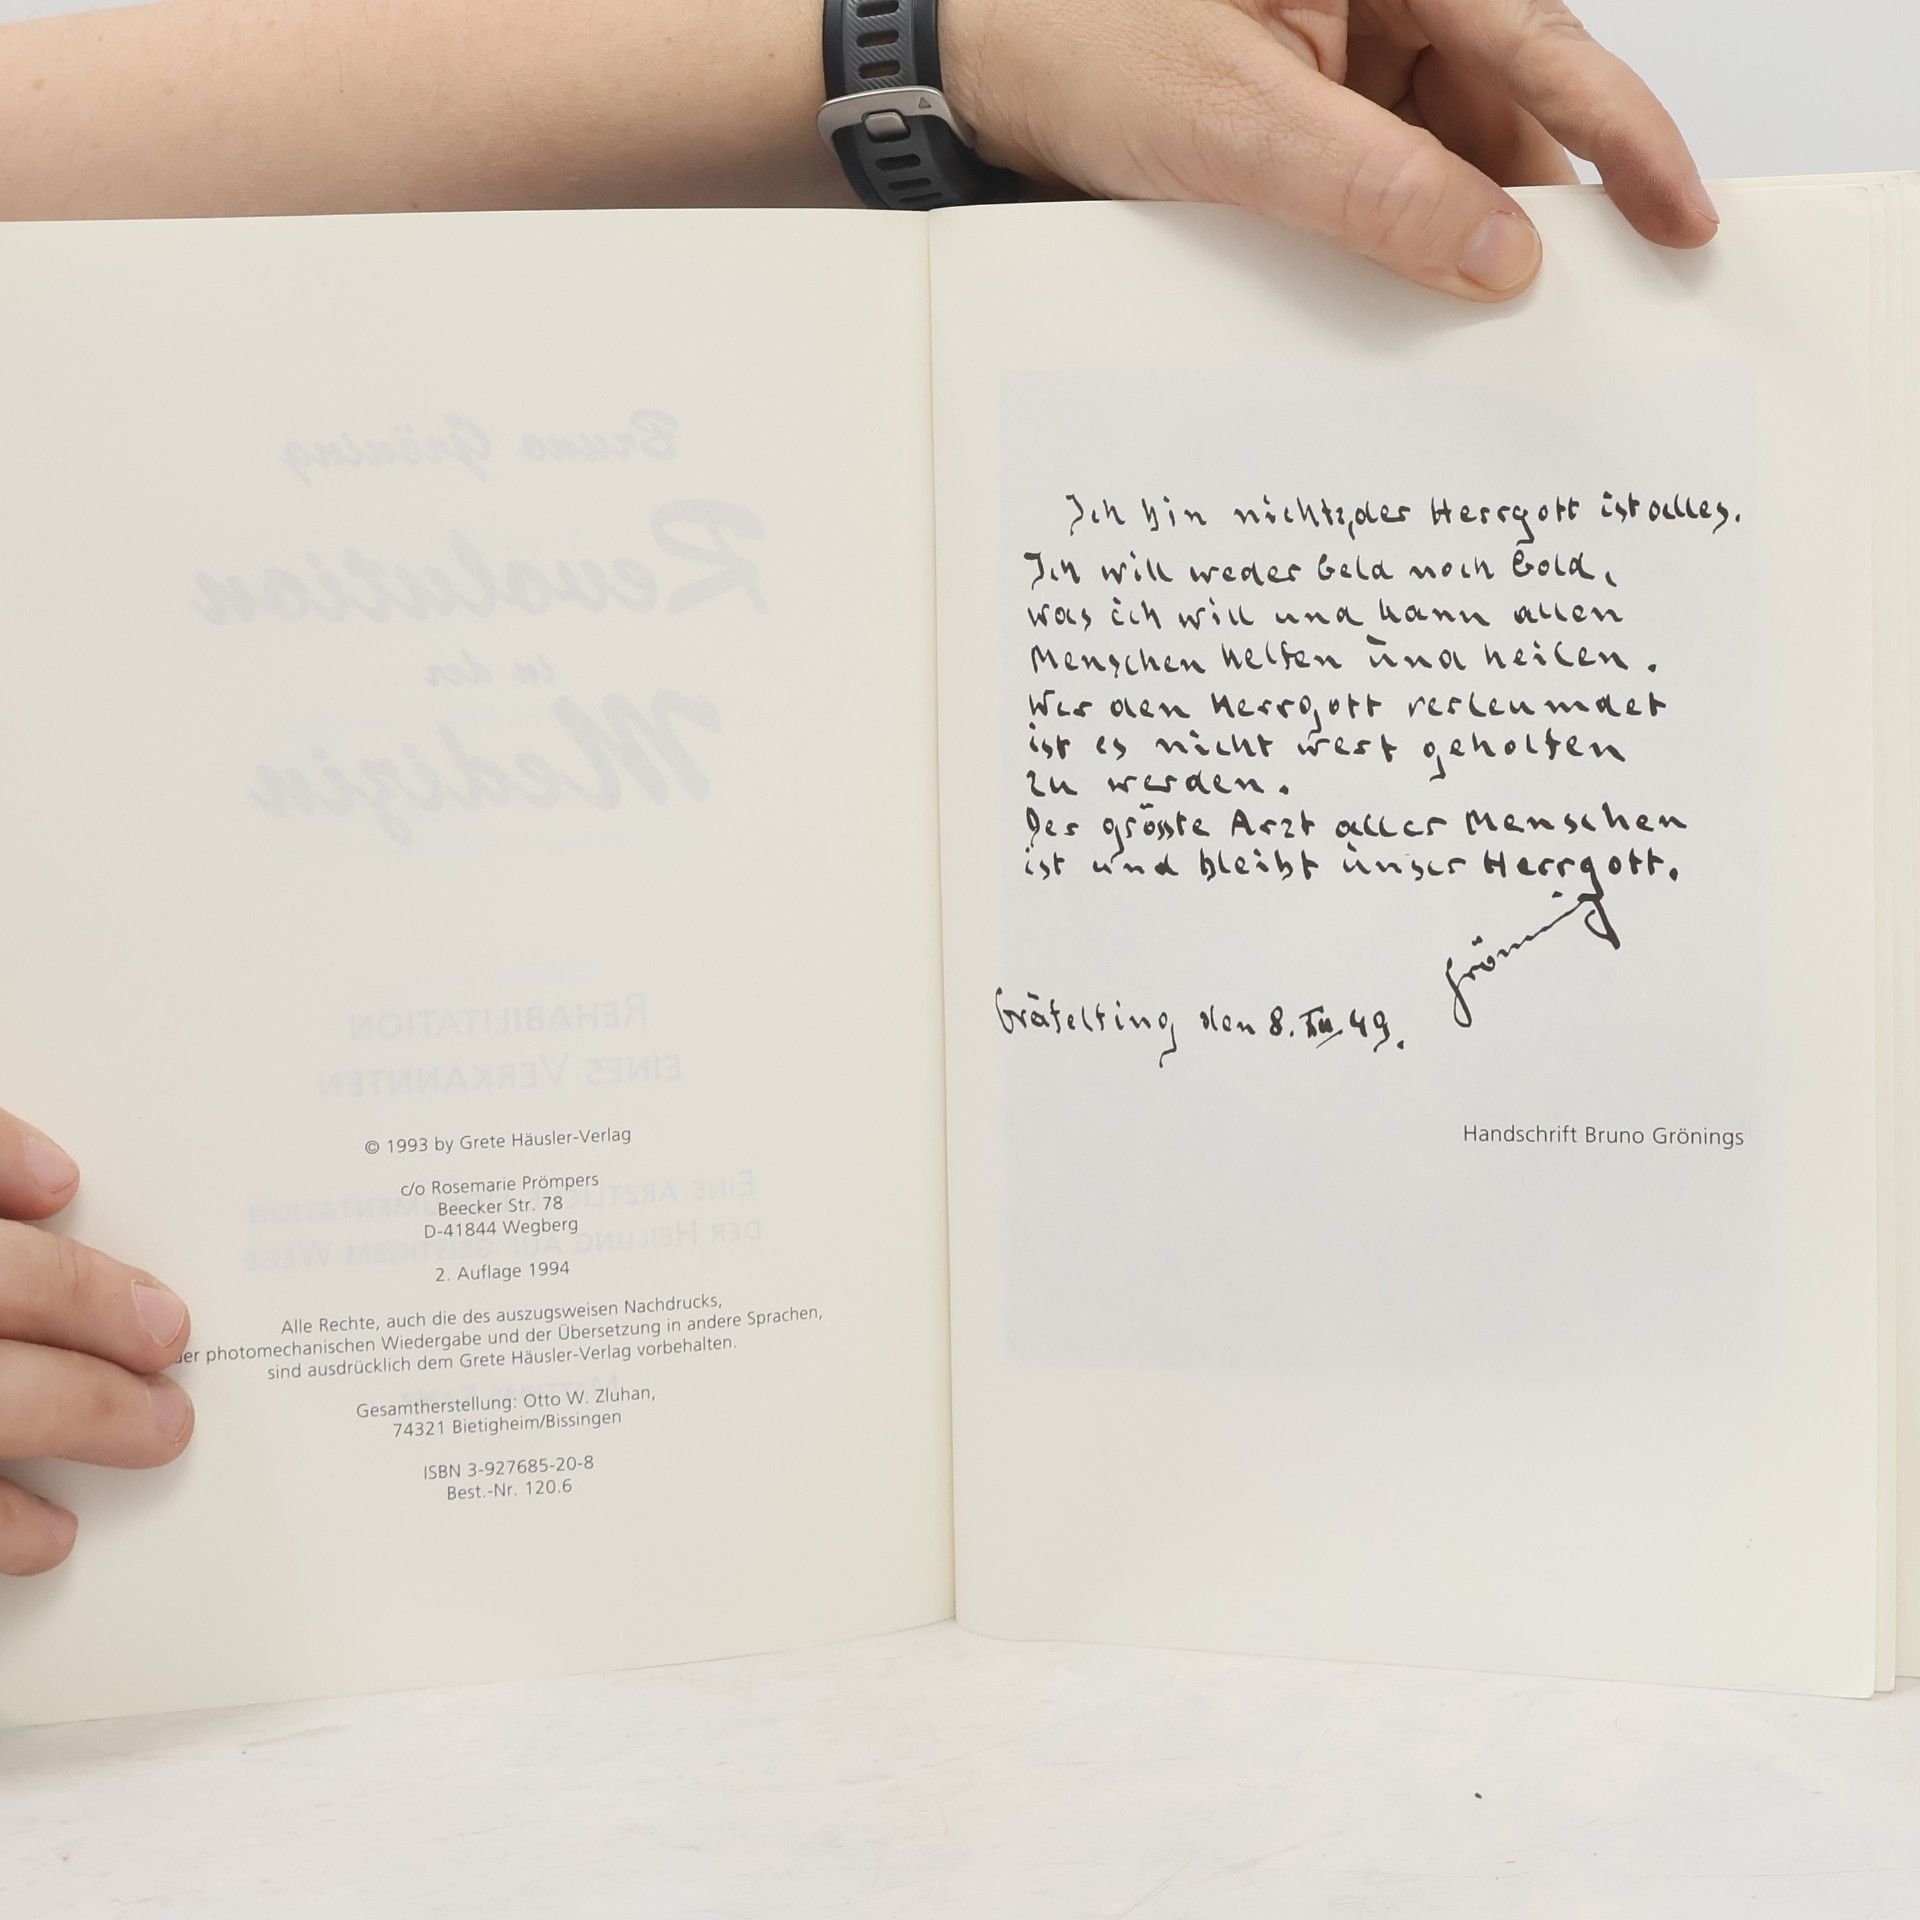 © 1993 by Grete Häusler-Verlag
c/o Rosemarie Prömpers
Beecker Str. 78
D-41844 Wegberg
2. Auflage 1994
Alle Rechte, auch die des auszugsweisen Nachdrucks,
der photomechanischen Wiedergabe und der Übersetzung in andere Sprachen,
sind ausdrücklich dem Grete Häusler-Verlag vorbehalten.
Gesamtherstellung: Otto W. Zluhan,
74321 Bietigheim/Bissingen
ISBN 3-927685-20-8
Best.-Nr. 120.6
Ich bin nichts, der Herrgott ist alles.
Ich will weder Geld noch Gold,
was ich will und kann allen
Menschen helfen und heilen.
Wer den Herrgott verleumdet
ist es nicht wert geholfen
zu werden.
Der grösste Arzt aller Menschen
ist und bleibt unser Herrgott.
Gröning
Gräfelfing den 8. XII. 49.
Handschrift Bruno Grönings